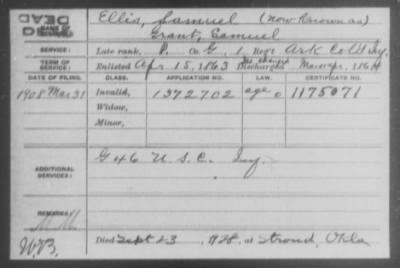 DEAD
NAME OF SOLDIER:
Ellis, Samuel (now known as)
Grant, Samuel
SERVICE: Late rank, P. Co. G, 1 Reg't Ark Cold Inf.
TERM OF SERVICE: Enlisted Apr. 15, 1863 Discharged 1864
DATE OF FILING. CLASS. APPLICATION NO. LAW. CERTIFICATE NO.
1908 Mar 31 Invalid, 1372702 age 1175071
Widow,
Minor,
ADDITIONAL SERVICES: G 46 U.S.C. Inf.
REMARKS:
Died Sept 23, 1928, at Stroud, Okla